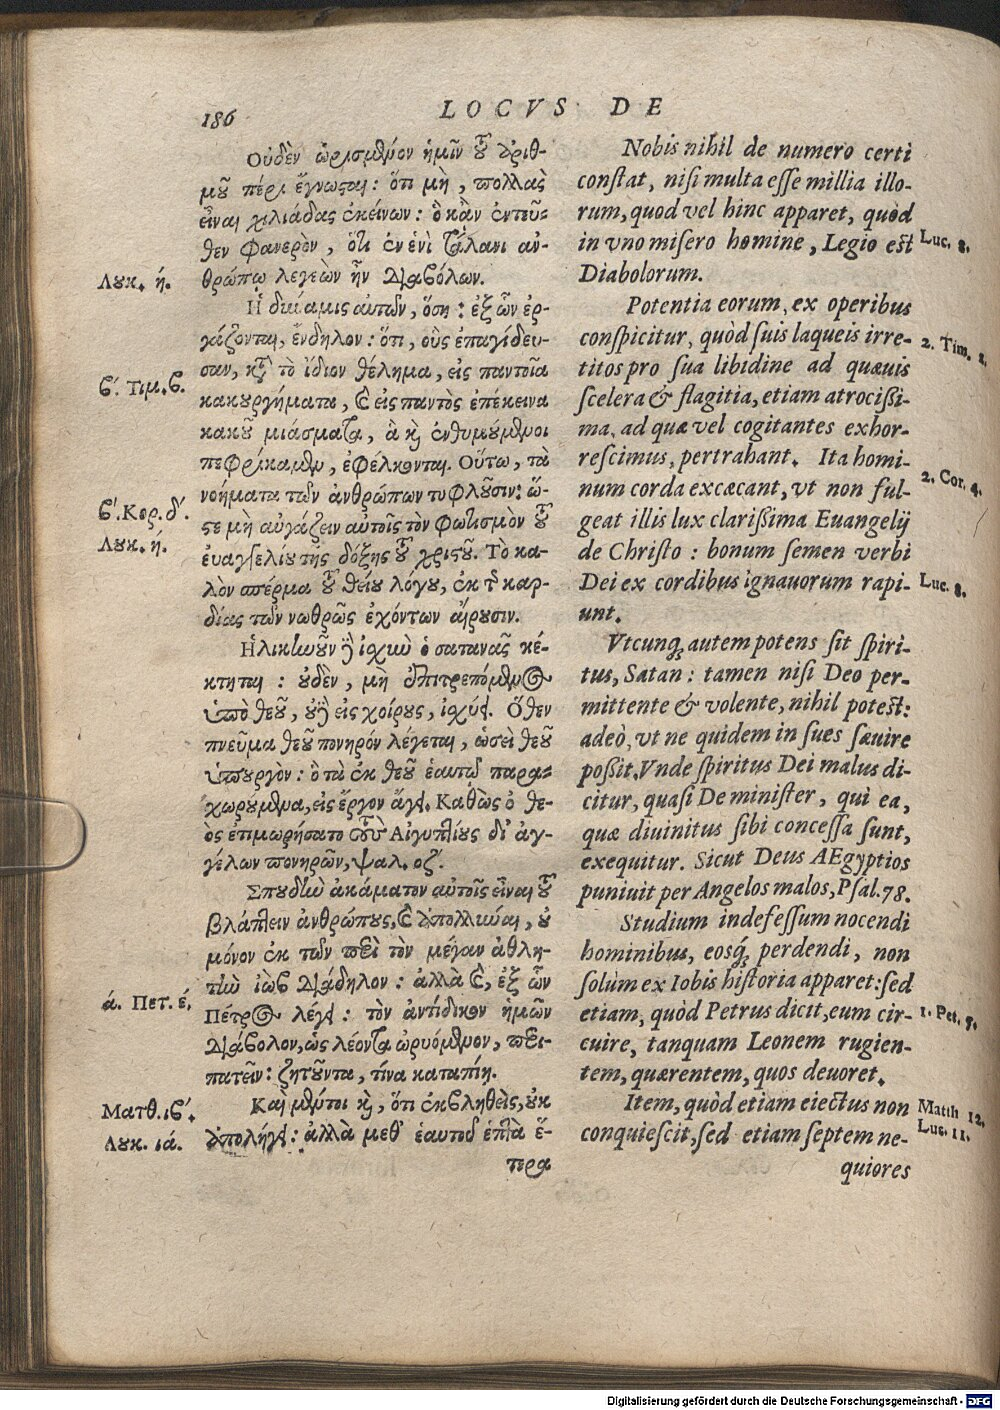 186
LOCVS DE
Οὐδὲν ὡρισμένον ἡμῖν τοῦ ἀριθ-
μοῦ πέρι ἔγνωσαι: ὅτι μὴ, πολλὰς
εἶναι χιλιάδας ἐκείνων: ὃ κἂν ἐντεῦ-
θεν φανερὸν, ὅτι ἐν ἑνὶ τάλανι ἀν-
Λουκ. ή.
θρώπῳ λεγεὼν ἦν Διαβόλων.
Ἡ δύναμις αὐτῶν, ὅση: ἐξ ὧν ἐρ-
γάζονται, ἔνδηλον: ὅτι, οὓς ἐπαγίδευ-
σαν, κατὰ τὸ ἴδιον θέλημα, εἰς παντοῖα
ϛ΄ Τιμ. ϛ.
κακουργήματα, καὶ εἰς παντὸς ἐπέκεινα
κακοῦ μιάσματα, ἃ καὶ ἐνθυμούμενοι
πεφρίκαμεν, ἐφέλκονται. Οὕτω, τὰ
νοήματα τῶν ἀνθρώπων τυφλοῦσιν: ὥ-
ϛ΄. Κορ. δ΄.
στε μὴ αὐγάζειν αὐτοῖς τὸν φωτισμὸν τοῦ
Λουκ. ή.
ἐυαγγελίου τῆς δόξης τοῦ χριστοῦ. Τὸ κα-
λὸν σπέρμα τοῦ θείου λόγου, ἐκ τῆς καρ-
δίας τῶν νωθρῶς ἐχόντων αἴρουσιν.
Ἡλίκην οὖν ἰσχὺν ὁ σατανᾶς κέ-
κτηται: οὐδὲν, μὴ ἐπιτρεπόμενος
ὑπὸ θεοῦ, οὐδὲ εἰς χοίρους, ἰσχύει. Ὅθεν
πνεῦμα θεοῦ πονηρόν λέγεται, ὡσεὶ θεοῦ
ὑπουργὸν: ὃ τὰ ἐκ θεοῦ ἑαυτῷ παρα-
χωρούμενα, εἰς ἔργον ἄγει. Καθὼς ὁ θε-
ὸς ἐτιμωρήσατο τοὺς Αἰγυπτίους δι᾽ ἀγ-
γέλων πονηρῶν, ψαλ. οζ΄.
Σπουδὴν ἀκάματον αὐτοῖς εἶναι τοῦ
βλάπτειν ἀνθρώπους, καὶ ἀπολλύναι, οὐ
μόνον ἐκ τῶν περὶ τὸν μέγαν ἀθλη-
τὴν ἰὼβ διάδηλον: ἀλλὰ καὶ, ἐξ ὧν
ά. Πετ. έ.
Πέτρος λέγει: τὸν ἀντίδικον ἡμῶν
Διάβολον, ὡς λέοντα ὠρυόμενον, περι-
πατεῖν: ζητοῦντα, τίνα καταπίῃ.
Ματθ. ιβ΄.
Καὶ μέντοι καὶ, ὅτι ἐκβληθεὶς, οὐκ
Λουκ. ιά.
ἀπολήγει: ἀλλὰ μεθ᾽ ἑαυτοῦ ἑπτὰ ἕ-
τερα
Nobis nihil de numero certi
constat, nisi multa esse millia illo-
rum, quod vel hinc apparet, quòd
in vno misero homine, Legio est
Luc. 8.
Diabolorum.
Potentia eorum, ex operibus
conspicitur, quòd suis laqueis irre-
2. Tim. 2.
titos pro sua libidine ad quæuis
scelera & flagitia, etiam atrocissi-
ma, ad quæ vel cogitantes exhor-
rescimus, pertrahant. Ita homi-
num corda excæcant, vt non ful-
2. Cor. 4.
geat illis lux clarissima Euangelij
de Christo: bonum semen verbi
Dei ex cordibus ignauorum rapi-
Luc. 8.
unt.
Vtcunq; autem potens sit spiri-
tus, Satan: tamen nisi Deo per-
mittente & volente, nihil potest:
adeò, vt ne quidem in sues sæuire
possit. Vnde spiritus Dei malus di-
citur, quasi De minister, qui ea,
quæ diuinitus sibi concessa sunt,
exequitur. Sicut Deus AEgyptios
puniuit per Angelos malos, Psal. 78.
Studium indefessum nocendi
hominibus, eosq́; perdendi, non
solùm ex Iobis historia apparet: sed
etiam, quòd Petrus dicit, eum cir-
1. Pet. 5.
cuire, tanquam Leonem rugien-
tem, quærentem, quos deuoret.
Item, quòd etiam eiectus non
Matth 12.
conquiescit, sed etiam septem ne-
Luc. 11.
quiores
Digitalisierung gefördert durch die Deutsche Forschungsgemeinschaft - DFG